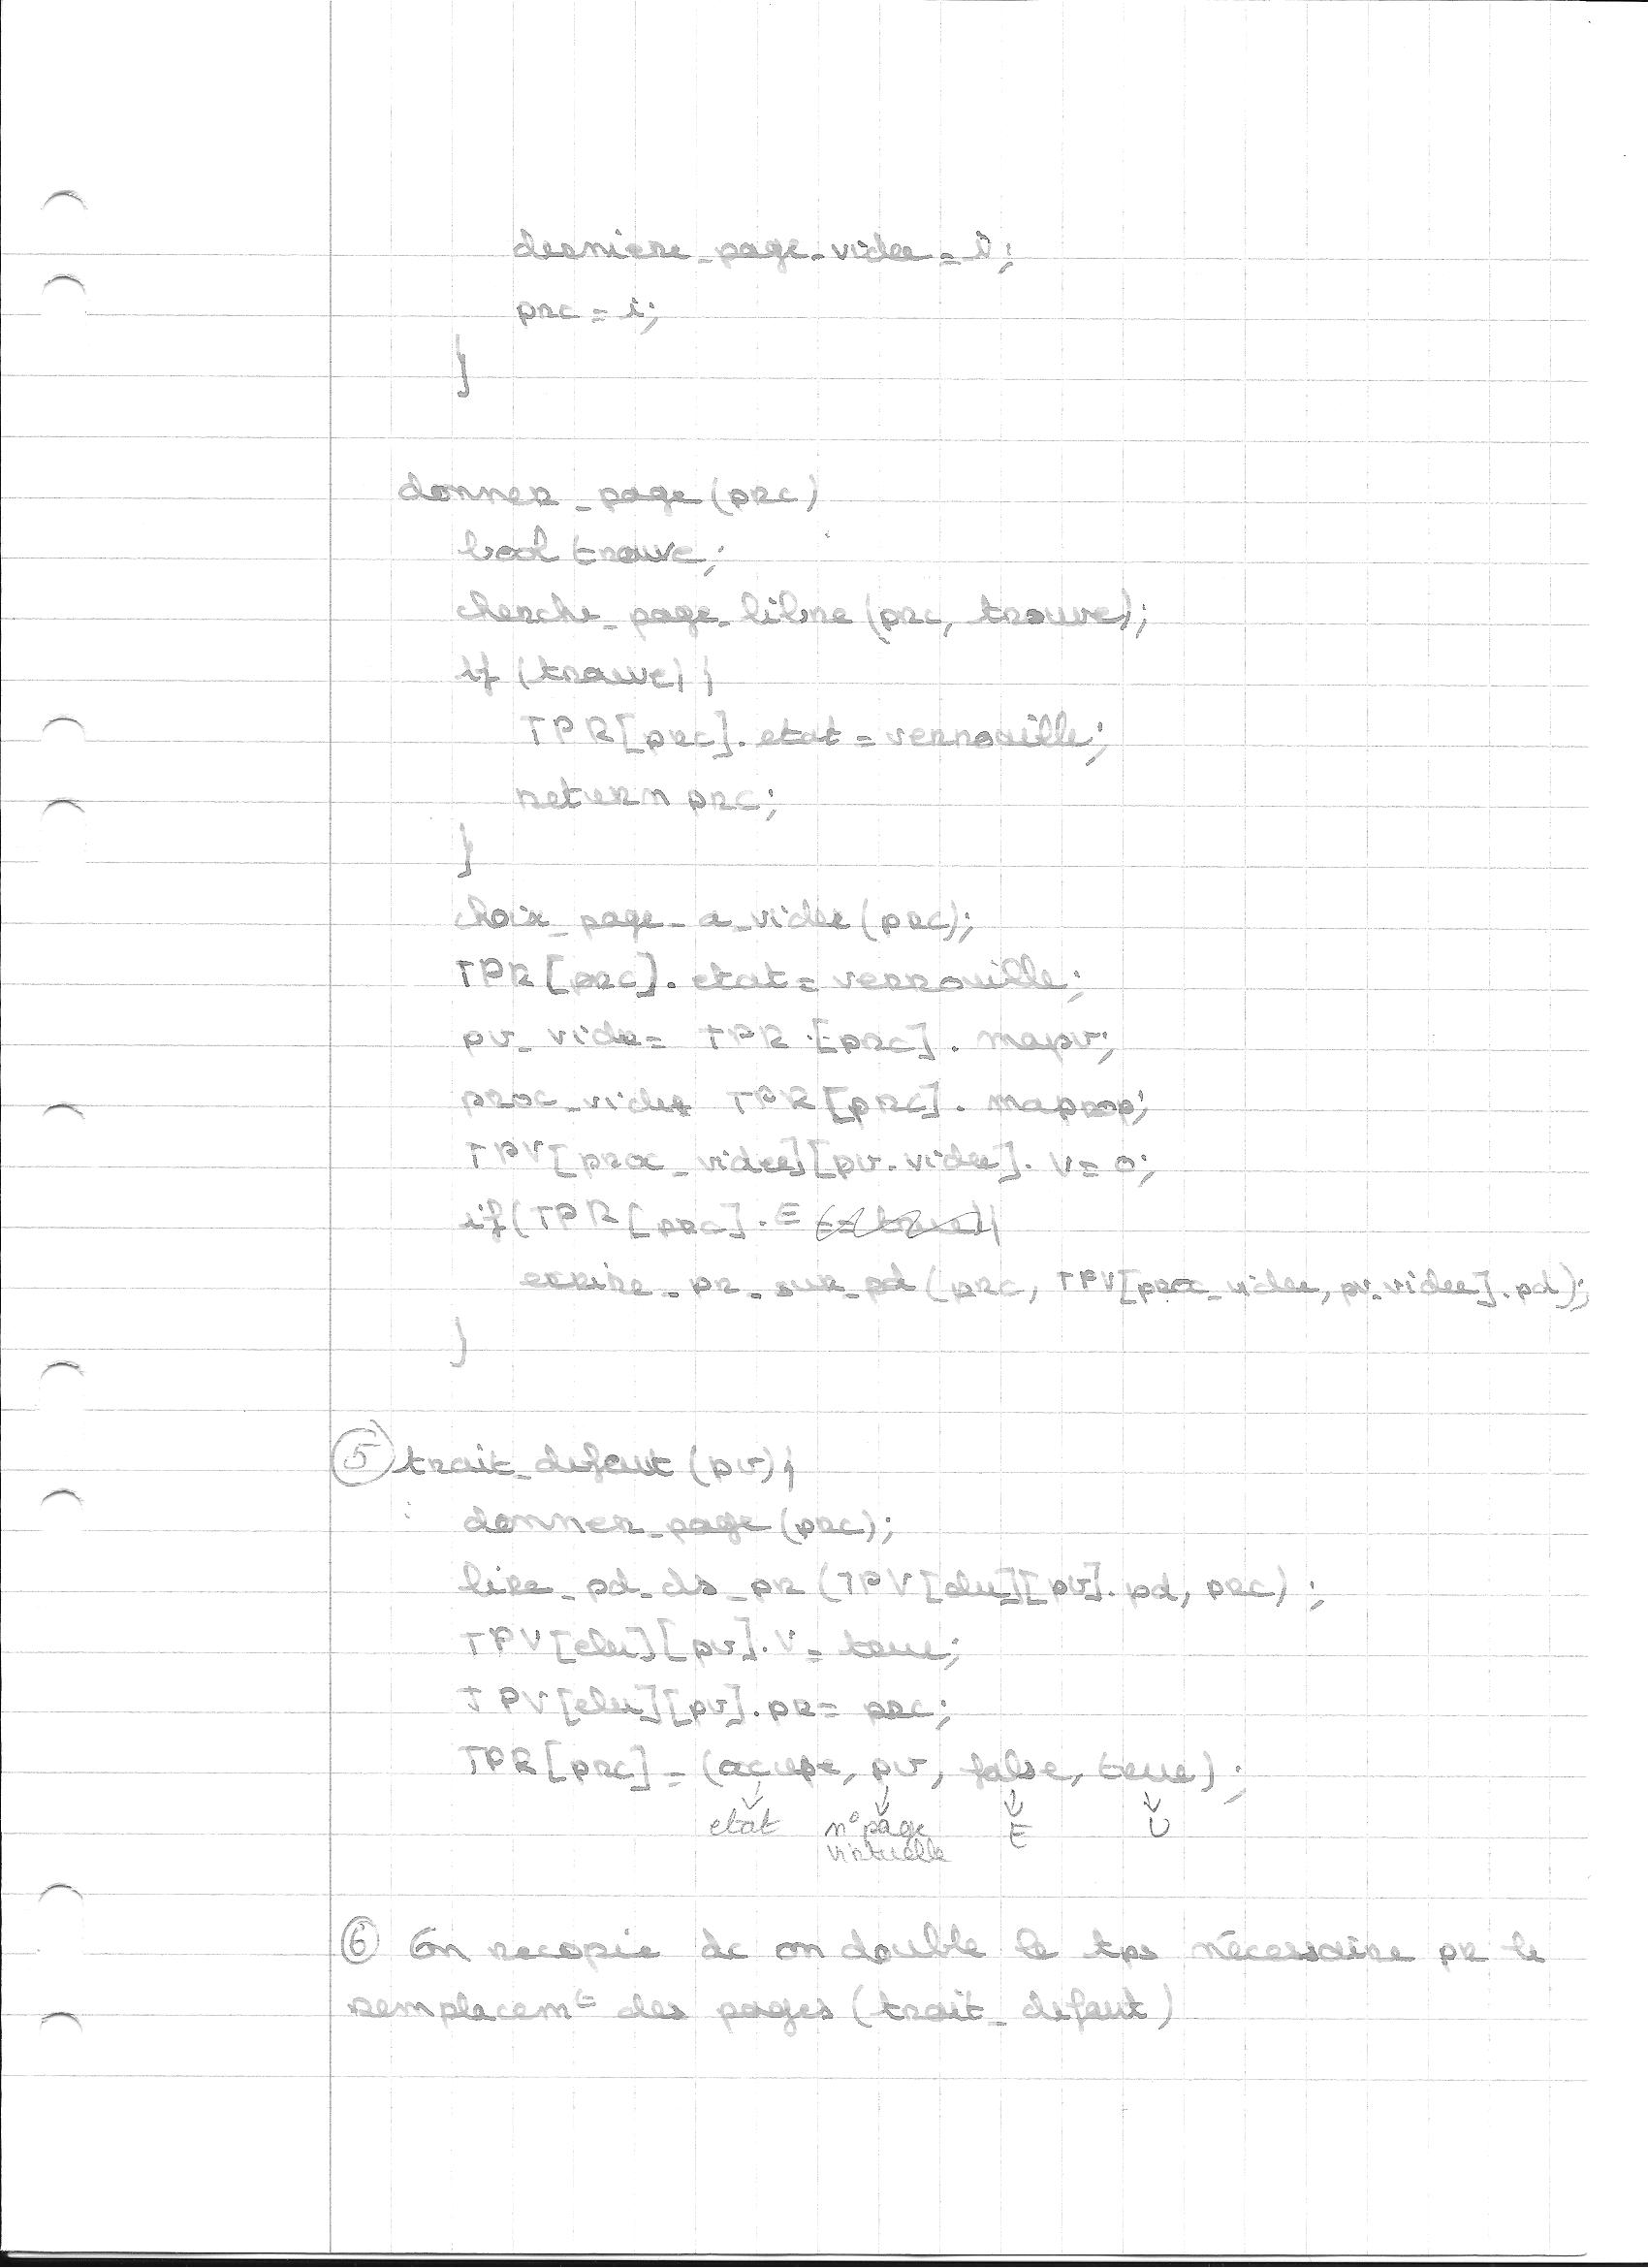 derniere_page_videe = i;
prc = i;
}
donner_page(prc)
bool trouve;
cherche_page_libre (prc, trouve);
if (trouve) {
TPR[prc].etat = verrouille;
return prc;
}
choix_page_a_videe (prc);
TPR[prc].etat = verrouille;
pv_videe = TPR[prc].mapv;
proc_videe TPR[prc].maprop;
TPV[proc_videe][pv_videe].V = 0;
if (TPR[prc].E
ecrire_pr_sur_pd (prc, TPV[proc_videe, pv_videe].pd);
}
⑤ trait_defaut (pv) {
donner_page (prc);
lire_pd_ds_pr (TPV[elu][pv].pd, prc);
TPV[elu][pv].V = true;
TPV[elu][pv].pr = prc;
TPR[prc] = (occupe, pv, false, true);
↓ ↓ ↓ ↓
etat n° page E U
virtuelle
⑥ On recopie dc on double le tps nécessaire pr le
remplacemt des pages (trait_defaut)